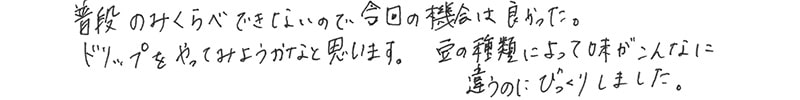 普段のみくらべできないので今回の機会は良かった。
ドリップをやってみようかなと思います。 豆の種類によって味がこんなに
違うのにびっくりしました。